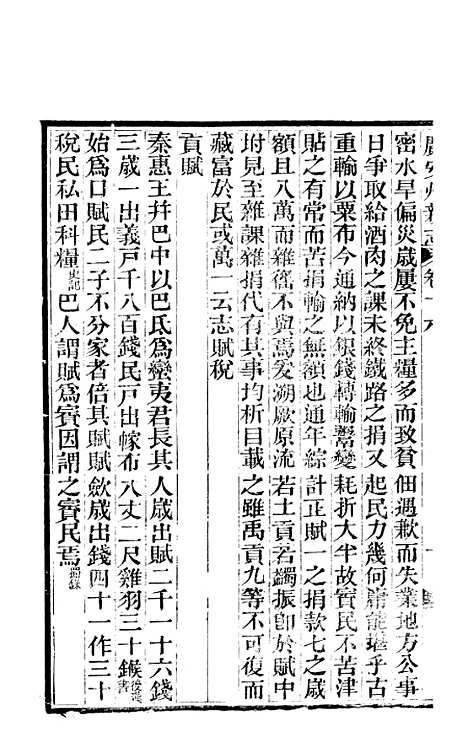 廣安州新志 卷十六
密水旱偏災歲屢不免主糧多而致貧佃遇歉而失業地方公事
日爭取給酒肉之課未終鐵路之捐又起民力幾何庸能堪乎古
重輸以粟布今通納以銀錢轉輸鬻變耗折大半故賨民不苦津
貼之有常而苦捐輸之無額也通年綜計正賦一之捐款七之歲
額且八萬而雜徭不與焉爰溯厥原流若土貢若蠲振卽於賦中
坿見至雜課雜捐代有其事均析目載之雖禹貢九等不可復而
藏富於民或萬一云志賦稅
貢賦
秦惠王幷巴中以巴氐爲蠻夷君長其人歲出賦二千一十六錢
三歲一出義戶千八百錢民戶出幏布八丈二尺雞羽三十鍭後漢書
始爲口賦民二子不分家者倍其賦賦斂歲出錢四十一作三十
稅民私田科糧史記巴人謂賦爲賨因謂之賨民焉